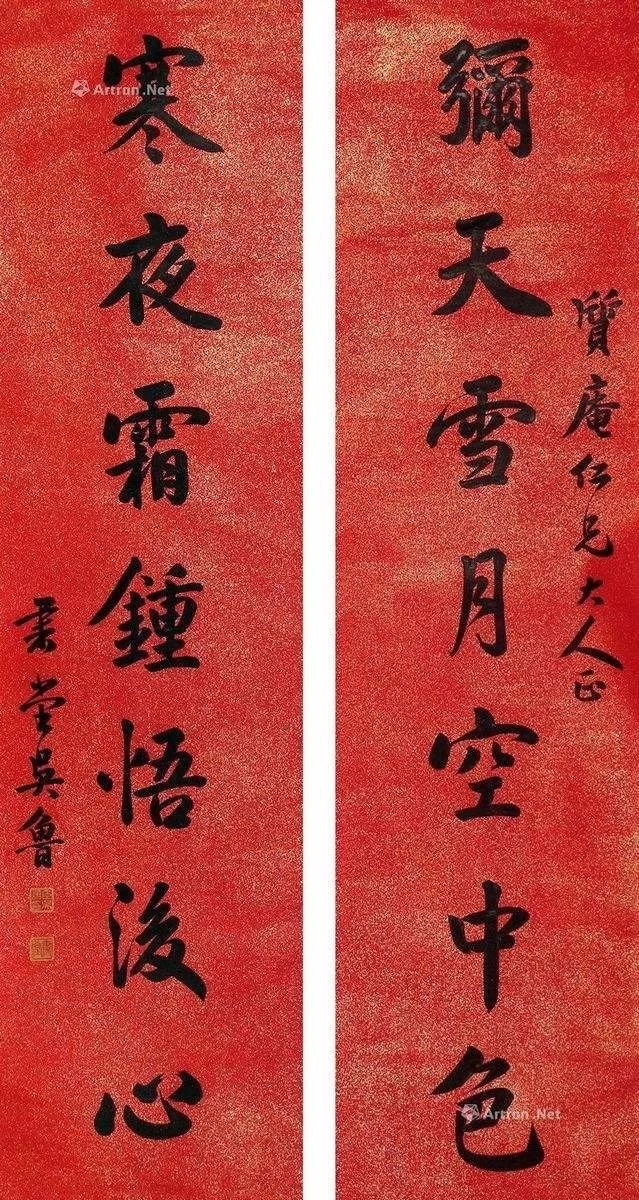 質庵仁兄大人正
彌天雪月空中色
寒夜霜鍾悟後心
肅堂吳魯
Artron.Net
Artron.Net